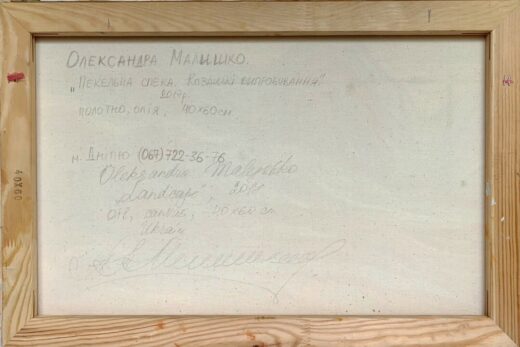 Олександра Малишко.
„Пекельна спека. Козацькі випробування"
2017р.
полотно, олія, 40х60см.
м. Дніпро (067) 722-36-76
Oleksandra Malyshko
„Landscape",
Oil, canvas, 40x60 cm
Ukraine
40x60